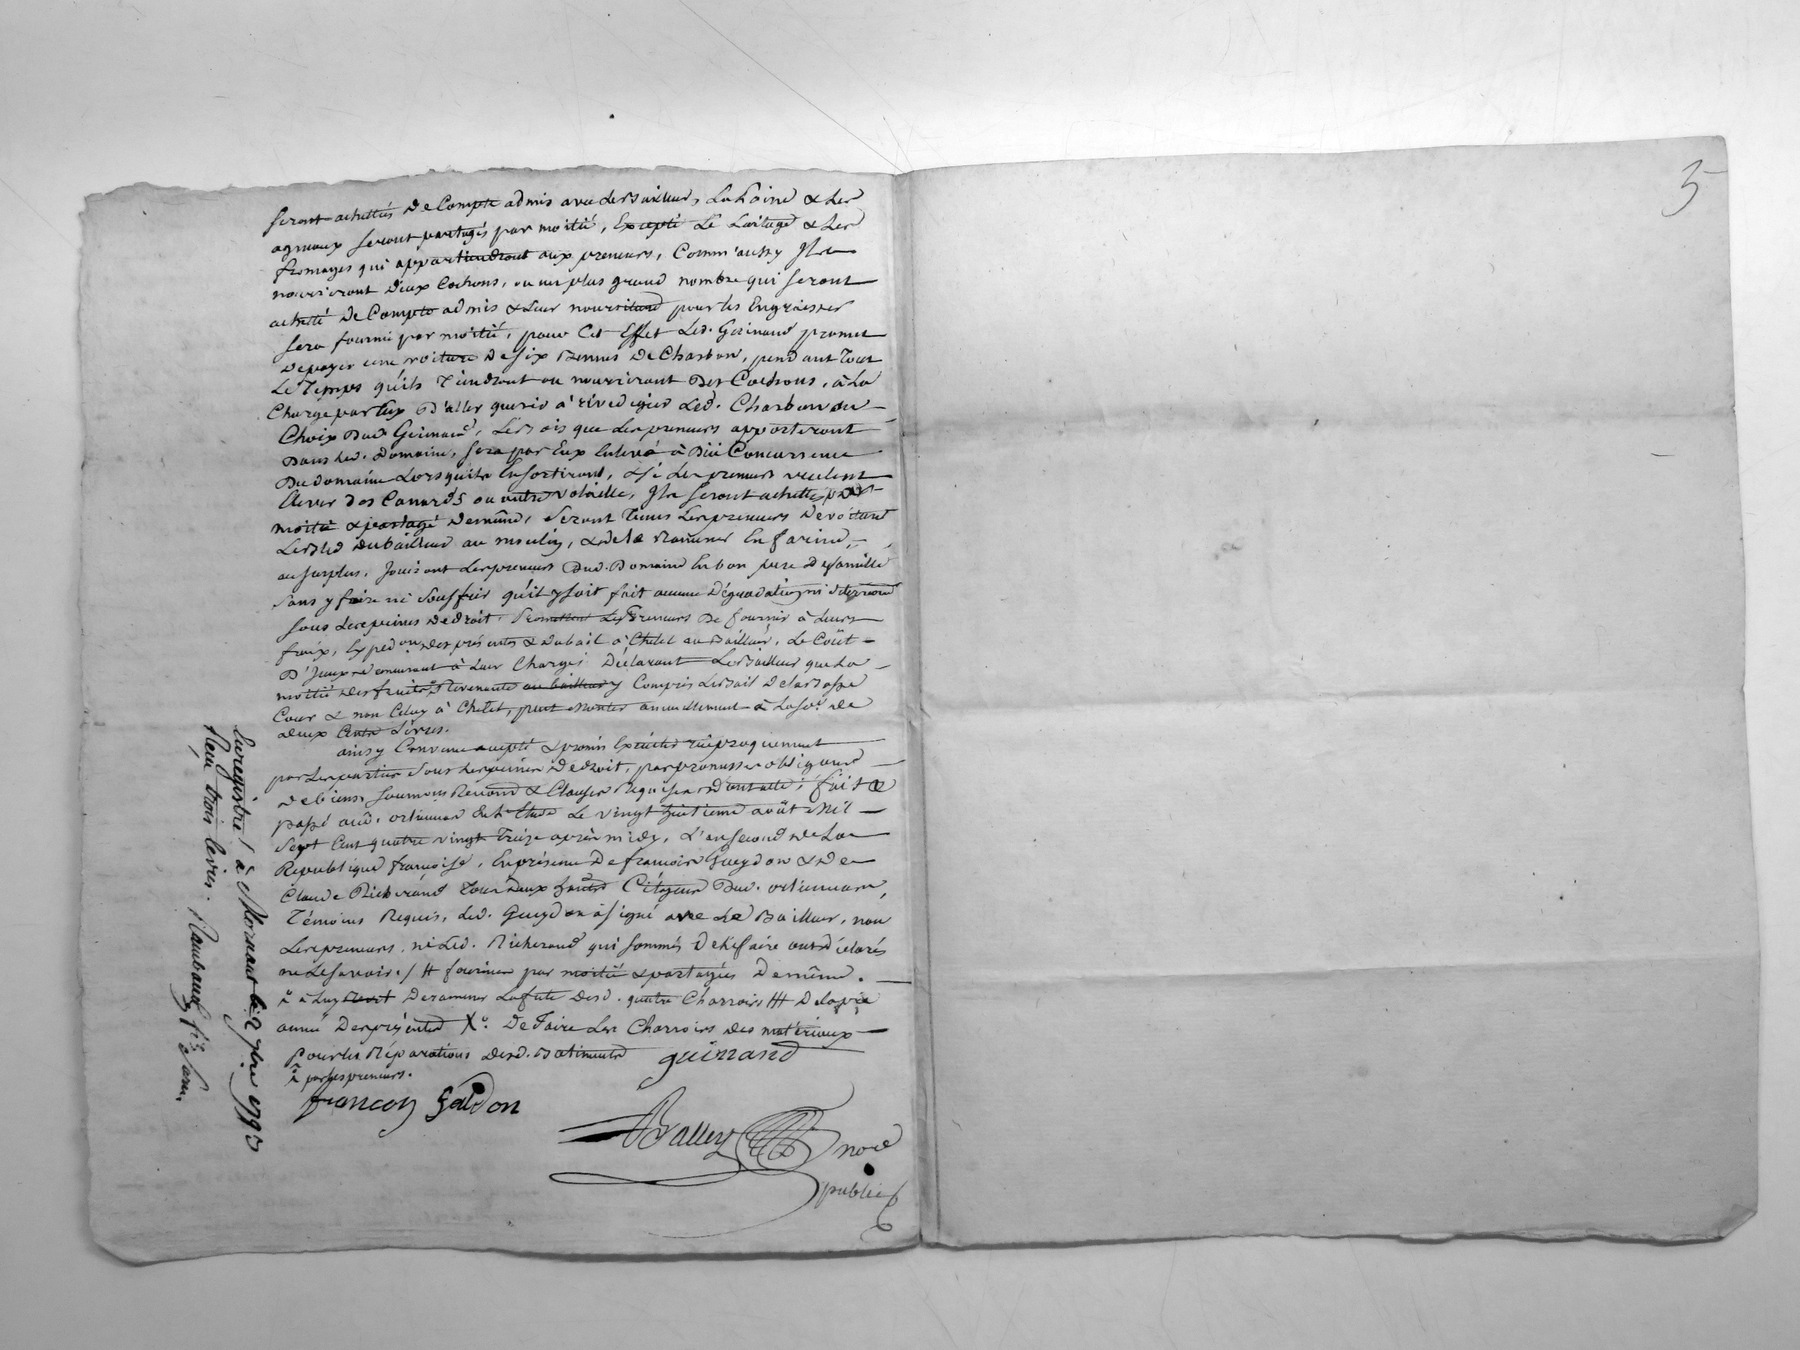 seront achettés de Compte admis avec les Bailleurs, La Laine & Les
agneaux seront partagés par moitié, Excepté Le Laitage & Les
fromages qui appartiendront aux preneurs, Comm'aussy Ils
nourriront deux Cochons, ou un plus grand nombre qui seront
achetté de Compte admis & Leur nourriture pour les Engraisser
sera fournie par moitié, pour Cet Effet Led. Guinand promet
de payer une voiture de six Bennes de Charbon, pendant Tout
Le Temps qu'ils Tiendront ou nourriront des Cochons, à La
Charge par Eux d'aller querir à rivedegier Led. Charbon au
Choix dud. Guinand, Les ois que Les preneurs apporteront
dans Led. Domaine, sera par Eux Enlevé à düe Concurrence
du domaine Lorsqu'ils En sortiront, & si Les preneurs veulent
Elever des Canards ou autre volaille, Ils seront achettés par
moitié & partagé de même, seront Tenus Les preneurs de voiturer
Les Bled du Bailleur au moulin, & de le Ramener En farine,
au surplus, Jouiront Les preneurs dud. Domaine En bon pere de famille
sans y faire ni souffrir qu'il y soit fait aucune dégradation ni
sous Les peines de droit. Promettent Les Preneurs de fournir à Leurs
fraix, Expedon des présentes & du bail à Chetel au Bailleur, Le Coût
d'Iceux demeurant à Leur Charge, Déclarant Les Bailleur que La
moitié des fruits Revenante au bailleur y Compris Le Bail de la Basse
Cour & non Celuy à Chetel, peut monter annuellement à La so.e de
deux Cents Livres.
ainsy Convenu accepté & promis Exécuter réciproquement
par Les parties sous Les peines de droit, par promesses obligaõns
de biens soumõns Renonõns & Clauses Requises dont acte; fait &
passé aud. Etude Le vingt huitieme août Mil
sept Cent quatre vingt Treize après midy, L'an second de La
Republique françoise, En présence de françois Gueydon & de
Claude Richerand Tous deux Citoyens dud.
Témoins Requis, Led. Gueydon a signé avec Le Bailleur, non
Les preneurs, ni Led. Richerand qui sommés de le faire ont déclarés
ne Le savoir./ # fournies par moitié & partagées de même.
de ramener La fute desd. quatre Charrois ## de La pre
année des présentes X.o de Faire Les Charrois des matériaux
Pour les Réparations desd. Batiments guinand
par Les preneurs.
francoy Gaidon
Balley nore
public
Enregistré à Mornant le 2 7bre 1793
Reçu trois livres.
5